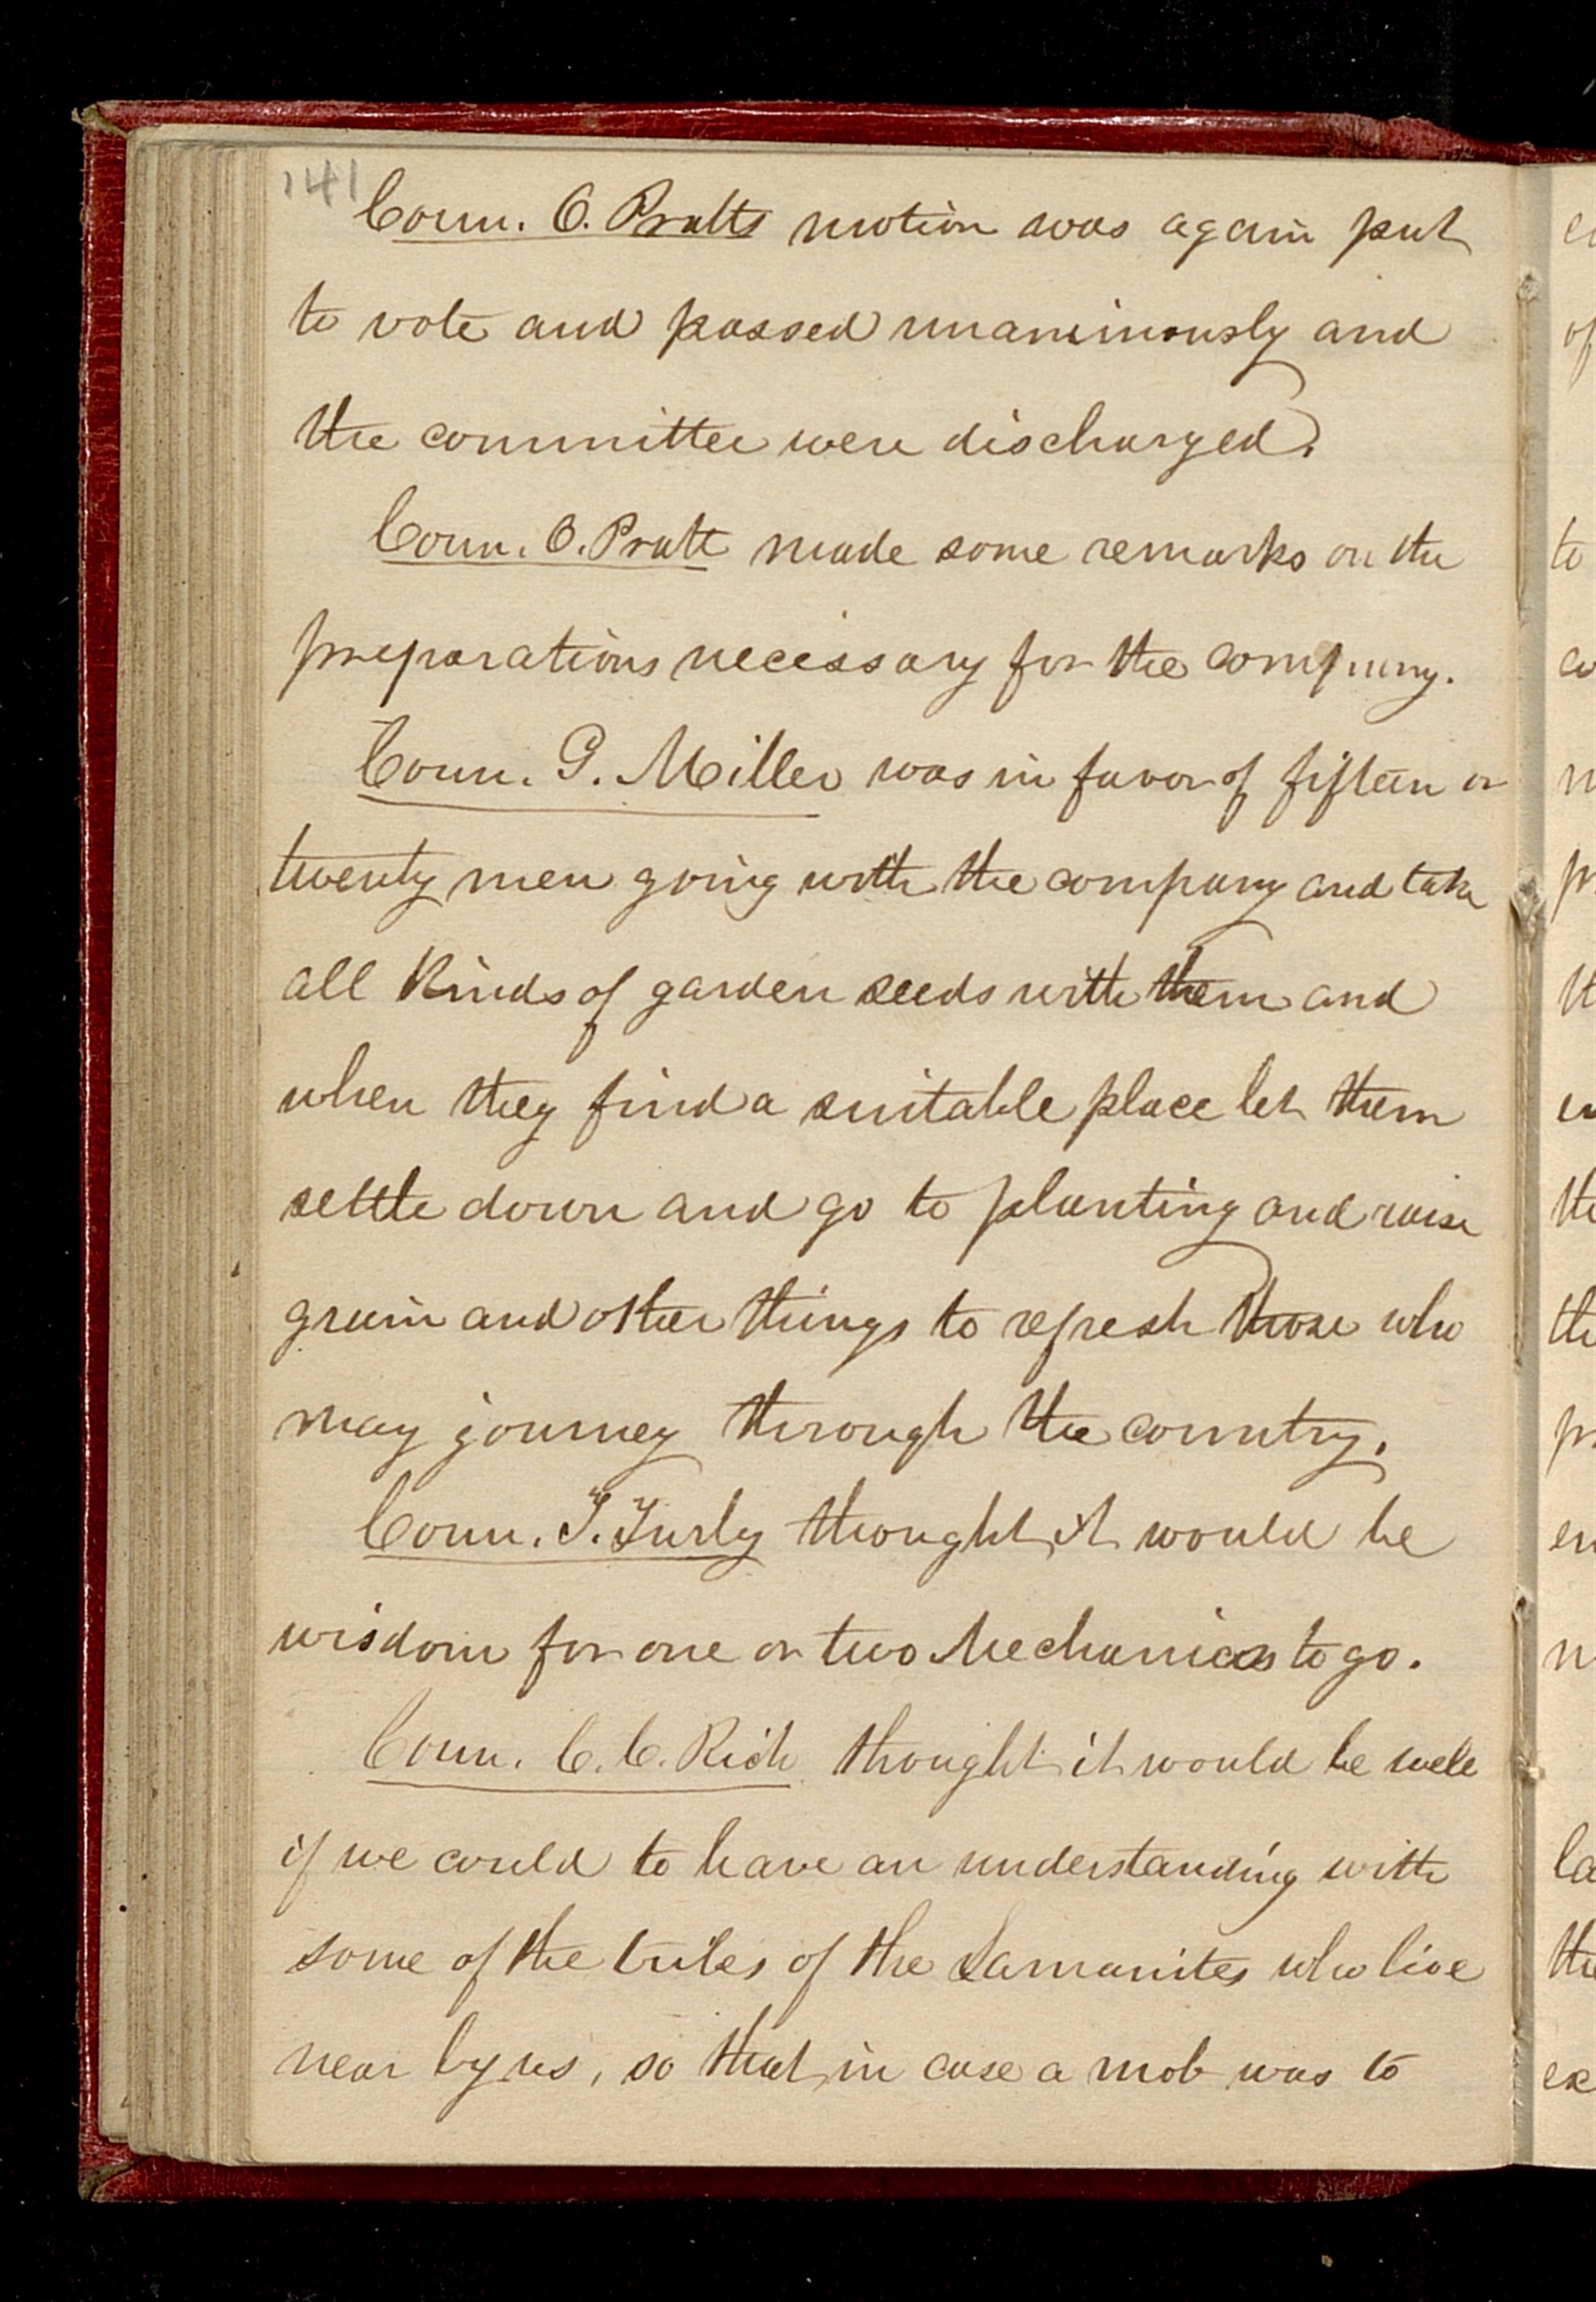 141
Coun. O. Pratts motion was again put
to vote and passed unanimously and
the committee were discharged.
Coun. O. Pratt made some remarks on the
preparations necessary for the company.
Coun. G. Miller was in favor of fifteen or
twenty men going with the company and take
all kinds of garden seeds with them and
when they find a suitable place let them
settle down and go to planting and raise
grain and other things to refresh those who
may journey through the country.
Coun. T. Turly thought it would be
wisdom for one or two Mechanics to go.
Coun. C. C. Rich thought it would be well
if we could to have an understanding with
some of the tribes of the Lamanites who live
near by us, so that in case a mob was to